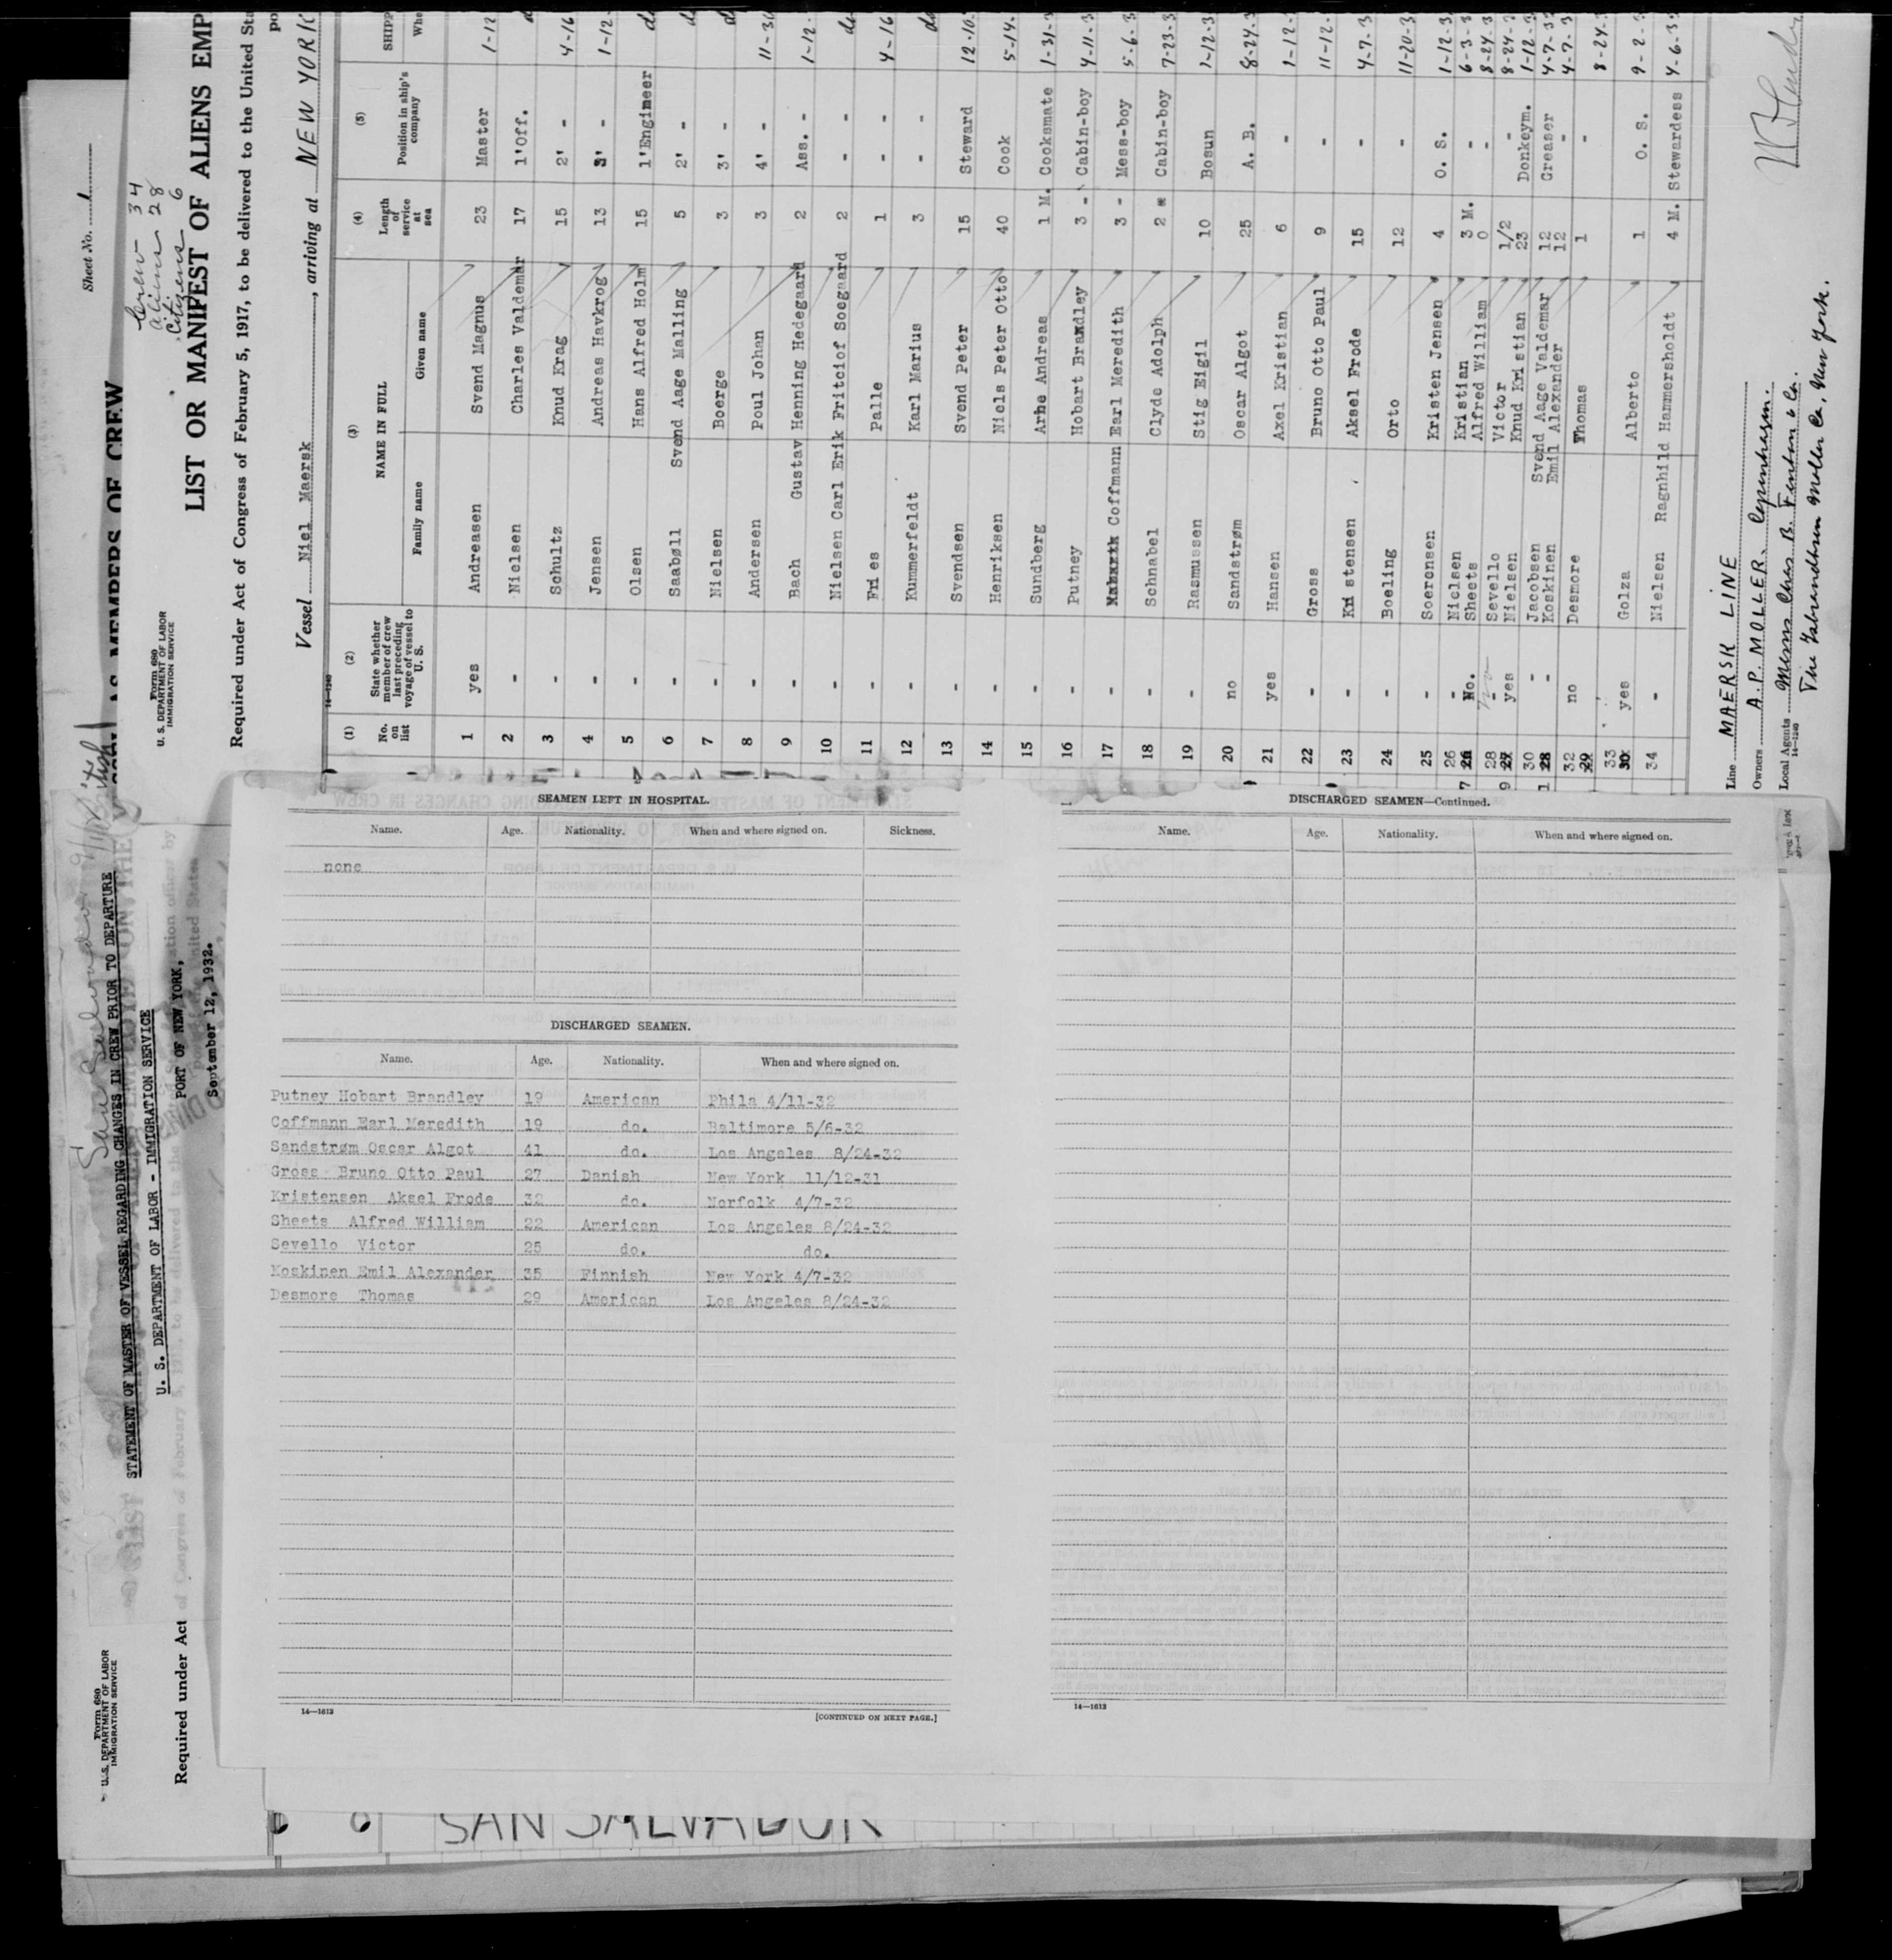 Sheet No. 1
Crew 34
aliens 28
Citizens 6
Form 680
U. S. DEPARTMENT OF LABOR
IMMIGRATION SERVICE
LIST OR MANIFEST OF ALIENS EMP
Required under Act of Congress of February 5, 1917, to be delivered to the United Sta
Vessel Niel Maersk, arriving at NEW YORK
14-1240
(1) (2) (3) (4) (5)
No. on list
State whether member of crew last preceding voyage of vessel to U. S.
NAME IN FULL
Family name Given name
Length of service at sea
Position in ship's company
SHIPP
Whe
1 yes Andreasen Svend Magnus 23 Master 1-12
2 - Nielsen Charles Valdemar 17 1'Off. d
3 - Schultz Knud Krag 15 2' - 4-16
4 - Jensen Andreas Havkrog 13 3' - 1-12-
5 - Olsen Hans Alfred Holm 15 1'Engineer d
6 - Saabøll Svend Aage Malling 5 2' - d
7 - Nielsen Boerge 3 3' - d
8 - Andersen Poul Johan 3 4' - 11-30
9 - Bach Gustav Henning Hedegaard 2 Ass. - 1-12-
10 - Nielsen Carl Erik Fritciof Soegaard 2 - - do
11 - Fries Palle 1 - - 4-16
12 - Kummerfeldt Karl Marius 3 - - do
13 - Svendsen Svend Peter 15 Steward 12-10-
14 - Henriksen Niels Peter Otto 40 Cook 5-14-
15 - Sundberg Arne Andreas 1 M. Cooksmate 1-31-3
16 - Putney Hobart Brandley 3 - Cabin-boy 4-11-3
17 - Coffmann Earl Meredith 3 - Mess-boy 5-6-3
18 - Schnabel Clyde Adolph 2 Cabin-boy 7-23-3
19 - Rasmussen Stig Eigil 10 Bosun 1-12-3
20 no Sandstrøm Oscar Algot 25 A. B. 8-24-3
21 yes Hansen Axel Kristian 6 - 1-12-
22 - Gross Bruno Otto Paul 9 - 11-12-
23 - Kristensen Aksel Frode 15 - 4-7-3
24 - Boeling Orto 12 - 11-20-3
25 - Soerensen Kristen Jensen 4 O. S. 1-12-3
26 - Nielsen Kristian 3 M. - 6-3-3
No. Sheets Alfred William 0 - 8-24-3
28 Sevello Victor 1/2 - 8-24-3
yes Nielsen Knud Kristian 23 Donkeym. 1-12-3
30 - Jacobsen Svend Aage Valdemar 12 Greaser 4-7-32
- Koskinen Emil Alexander 12 - 4-7-3
32 no Desmore Thomas 1 - 8-24-
33 yes Golza Alberto 1 O. S. 9-2-3
34 - Nielsen Ragnhild Hammersholdt 4 M. Stewardess 4-6-32
Line MAERSK LINE
Owners A.P. MOLLER. Copenhagen.
Local Agents Messrs Chas B. Fenton & Co.
14-1240
AS MEMBERS OF CREW
STATEMENT OF MASTER OF VESSEL REGARDING CHANGES IN CREW PRIOR TO DEPARTURE
U. S. DEPARTMENT OF LABOR - IMMIGRATION SERVICE
PORT OF NEW YORK,
September 12, 1932.
Form 680
U. S. DEPARTMENT OF LABOR
IMMIGRATION SERVICE
Required under Act of Congress of February
SEAMEN LEFT IN HOSPITAL.
Name. Age. Nationality. When and where signed on. Sickness.
none
DISCHARGED SEAMEN.
Name. Age. Nationality. When and where signed on.
Putney Hobart Brandley 19 American Phila 4/11-32
Coffmann Earl Meredith 19 do. Baltimore 5/6-32
Sandstrøm Oscar Algot 41 do. Los Angeles 8/24-32
Gross Bruno Otto Paul 27 Danish New York 11/12-31
Kristensen Aksel Frode 32 do. Norfolk 4/7-32
Sheets Alfred William 22 American Los Angeles 8/24-32
Sevello Victor 25 do. do.
Koskinen Emil Alexander 35 Finnish New York 4/7-32
Desmore Thomas 29 American Los Angeles 8/24-32
14—1613
[CONTINUED ON NEXT PAGE.]
DISCHARGED SEAMEN—Continued.
Name. Age. Nationality. When and where signed on.
14—1613
SAN SALVADOR